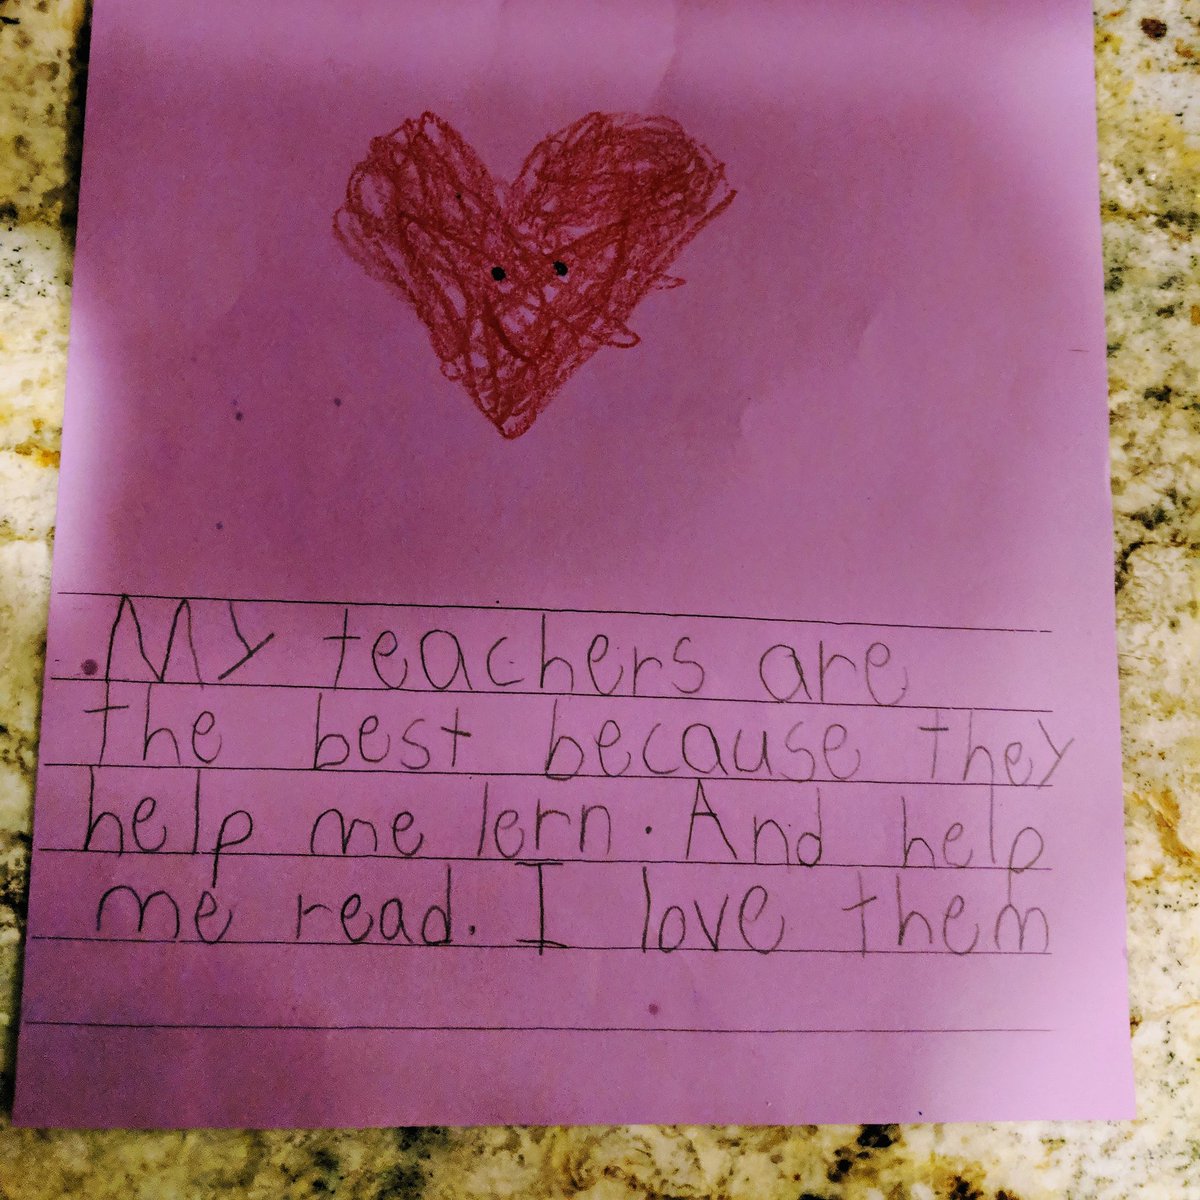 My teachers are
the best because they
help me lern. And help
me read. I love them